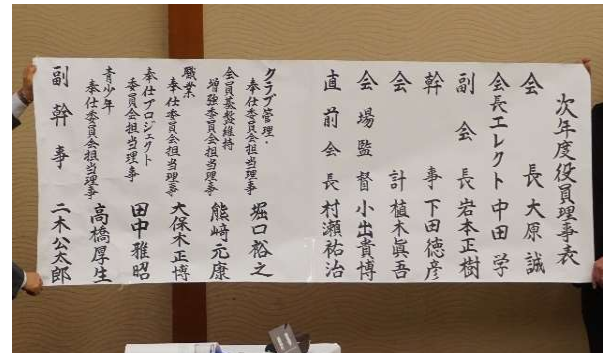 次年度役員理事表
会長 大原誠
会長エレクト 中田学
副会長 岩本正樹
幹事 下田徳彦
会計 植木眞吾
会場監督 小出貴博
直前会長 村瀬祐治
クラブ管理・
奉仕委員会担当理事 堀口裕之
会員基盤維持
増強委員会担当理事 熊﨑元康
職業
奉仕委員会担当理事 大保木正博
奉仕プロジェクト
委員会担当理事 田中雅昭
青少年
奉仕委員会担当理事 高橋厚生
副幹事 二木公太郎